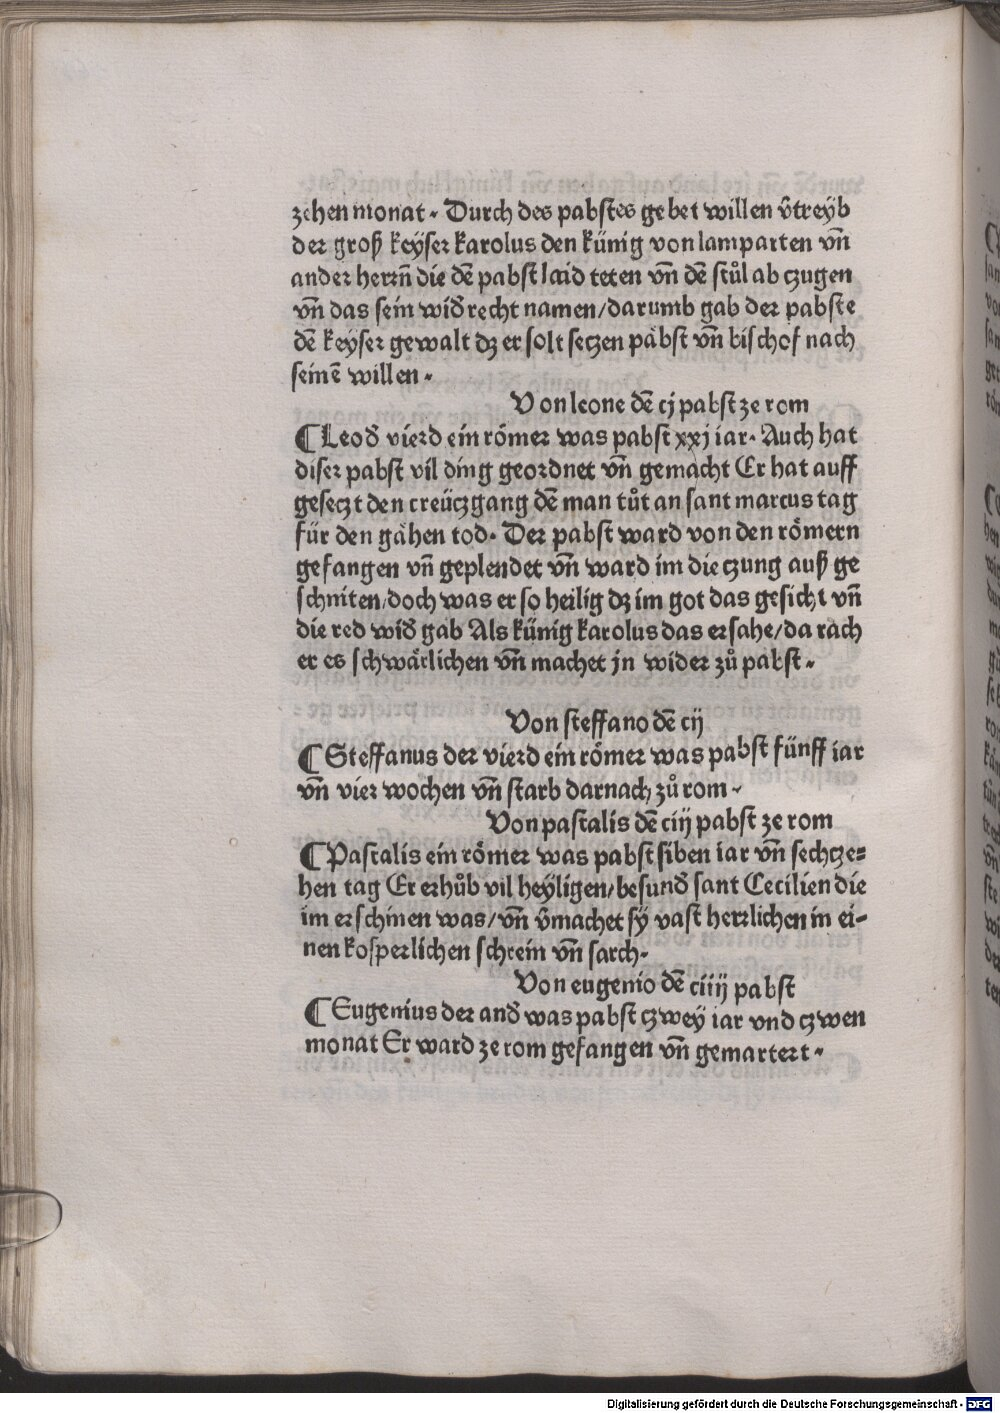 zehen monat. Durch des pabstes gebet willen v̄treyb
der groß keyser karolus den künig von lamparten vn̄
ander herrn̄ die dē pabst laid teten vn̄ dē stůl ab czugen
vn̄ das sein wid̄ recht namen/darumb gab der pabste
dē keyser gewalt dz er solt seczen päbst vn̄ bischof nach
seinē willen.
Von leone dē cj pabst ze rom
¶ Leo d̄ vierd ein römer was pabst xxj iar. Auch hat
diser pabst vil ding geordnet vn̄ gemacht Er hat auff
geseczt den creüczgang dē man tůt an sant marcus tag
für den gähen tod. Der pabst ward von den römern
gefangen vn̄ geplendet vn̄ ward im die czung auß ge
schniten/doch was er so heilig dz im got das gesicht vn̄
die red wid̄ gab Als künig karolus das ersahe/da rach
er es schwärlichen vn̄ machet jn wider zů pabst.
Von steffano dē cij
¶ Steffanus der vierd ein römer was pabst fünff iar
vn̄ vier wochen vn̄ starb darnach zů rom.
Von pascalis dē ciij pabst ze rom
¶ Pascalis ein römer was pabst siben iar vn̄ sechcze=
hen tag Er erhůb vil heyligen/besund̄ sant Cecilien die
im erschinen was/vn̄ v̄machet sy vast herrlichen in ei-
nen kosperlichen schrein vn̄ sarch.
Von eugenio dē ciiij pabst
¶ Eugenius der and̄ was pabst czwey iar vnd czwen
monat Er ward ze rom gefangen vn̄ gemartert.
Digitalisierung gefördert durch die Deutsche Forschungsgemeinschaft - DFG